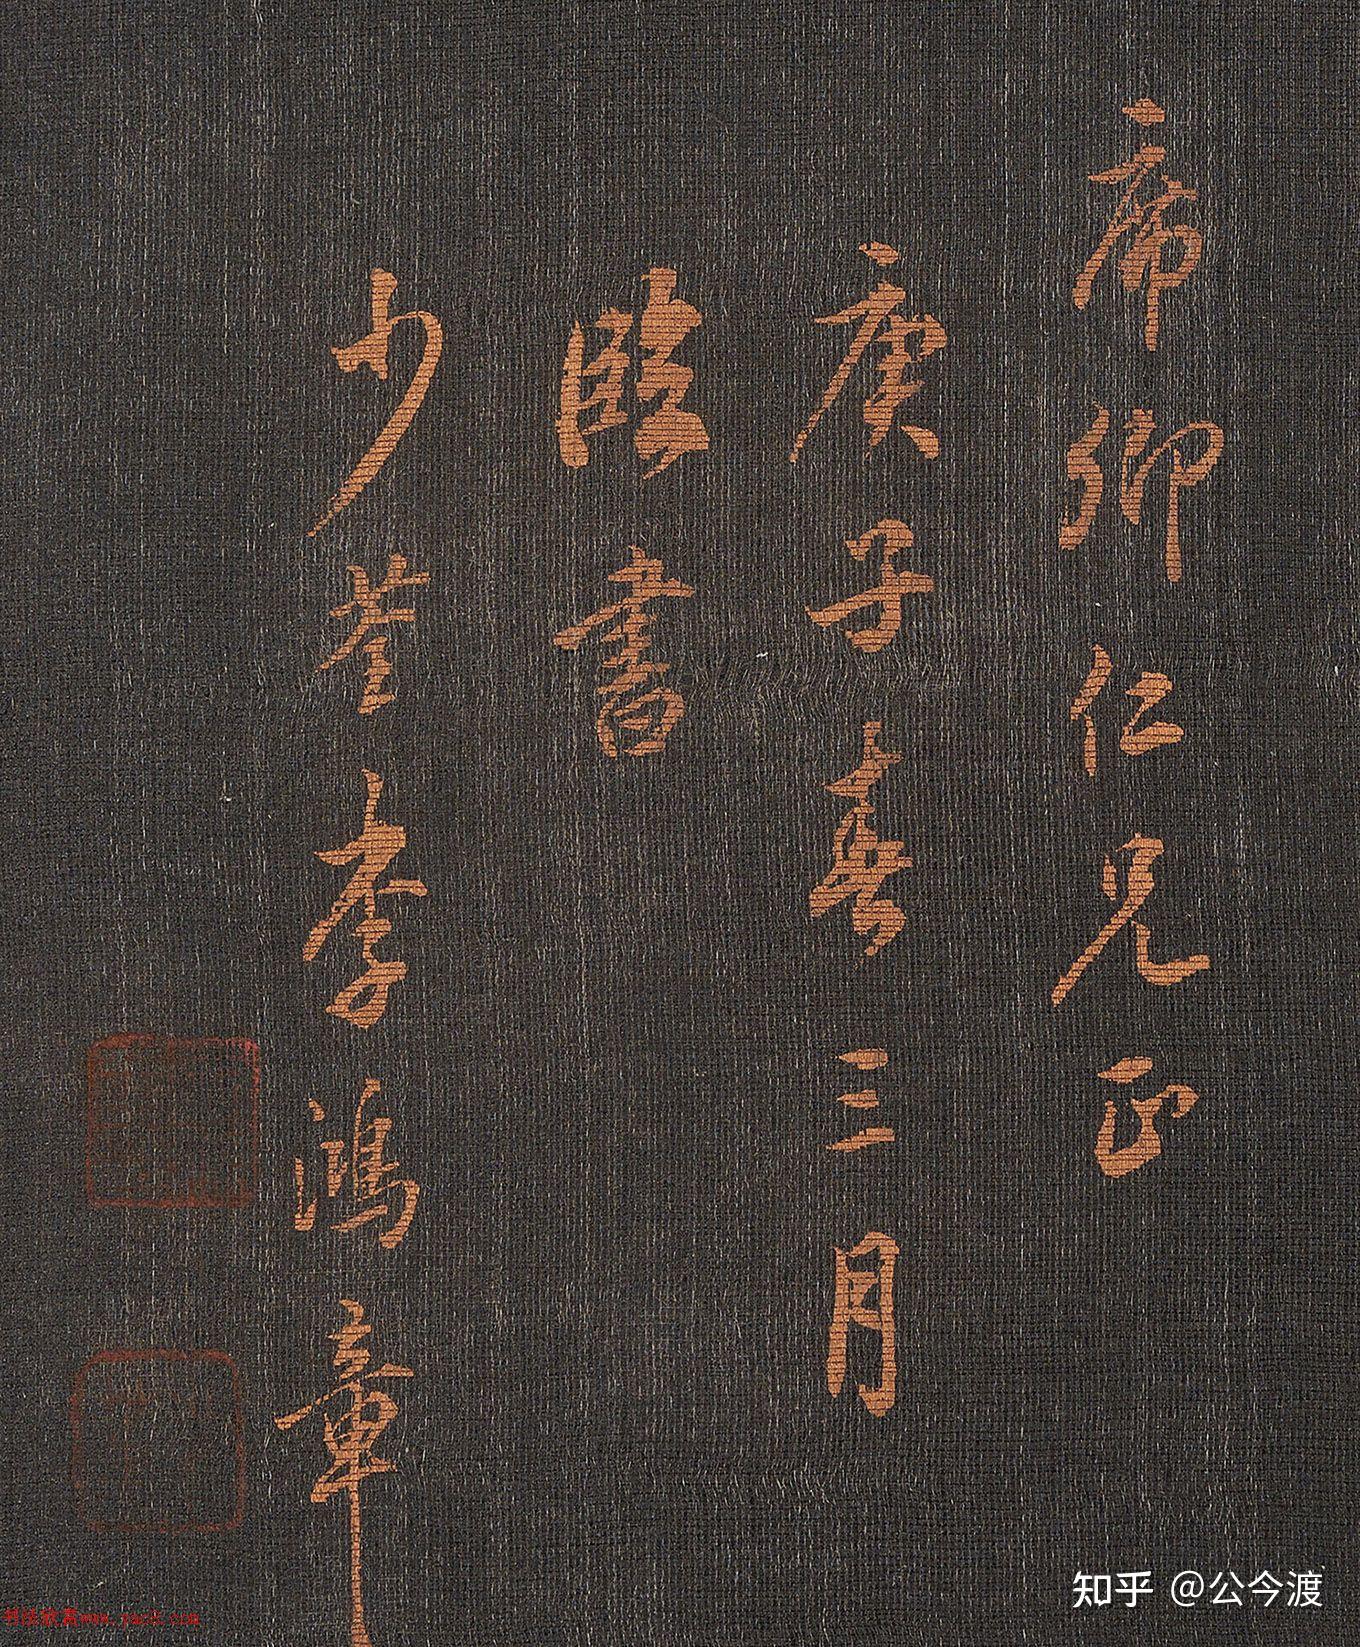 席卿仁兄正
庚子春三月
臨書
少荃李鴻章
知乎 @公今渡
书法欣赏www.yac8.com